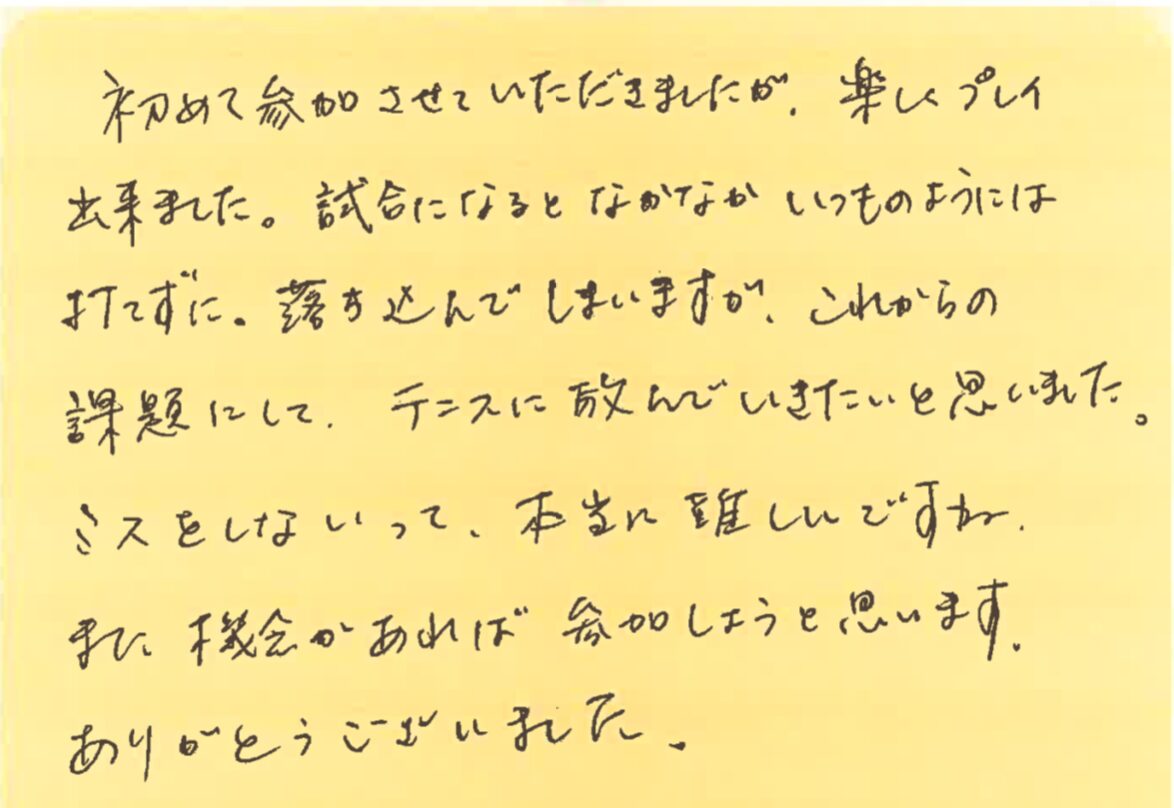 初めて参加させていただきましたが、楽しくプレイ
出来ました。試合になるとなかなかいつものようには
打てずに。落ち込んでしまいますが、これからの
課題にして、テニスに励んでいきたいと思いました。
ミスをしないって、本当に難しいですね。
また機会があれば参加しようと思います。
ありがとうございました。